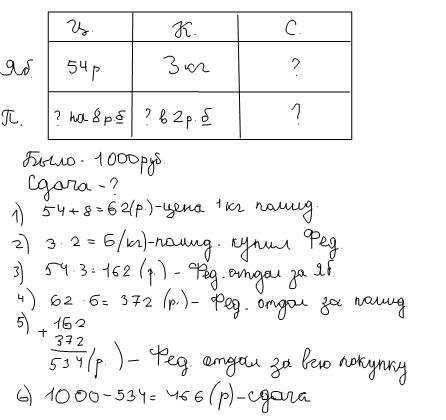 Ц. К. С.
Яб. 54р. 3кг ?
П. ? на 8р.б ? в 2р.б ?
Было - 1000руб.
Сдача - ?
1) 54+8=62(р.)-цена 1кг помид.
2) 3·2=6(кг)-помид. купил Фед.
3) 54·3=162(р.)- Фед. отдал за яб.
4) 62·6=372(р.)- Фед. отдал за помид
5) + 162
372
534(р.)- Фед. отдал за всю покупку
6) 1000-534=466(р)-сдача